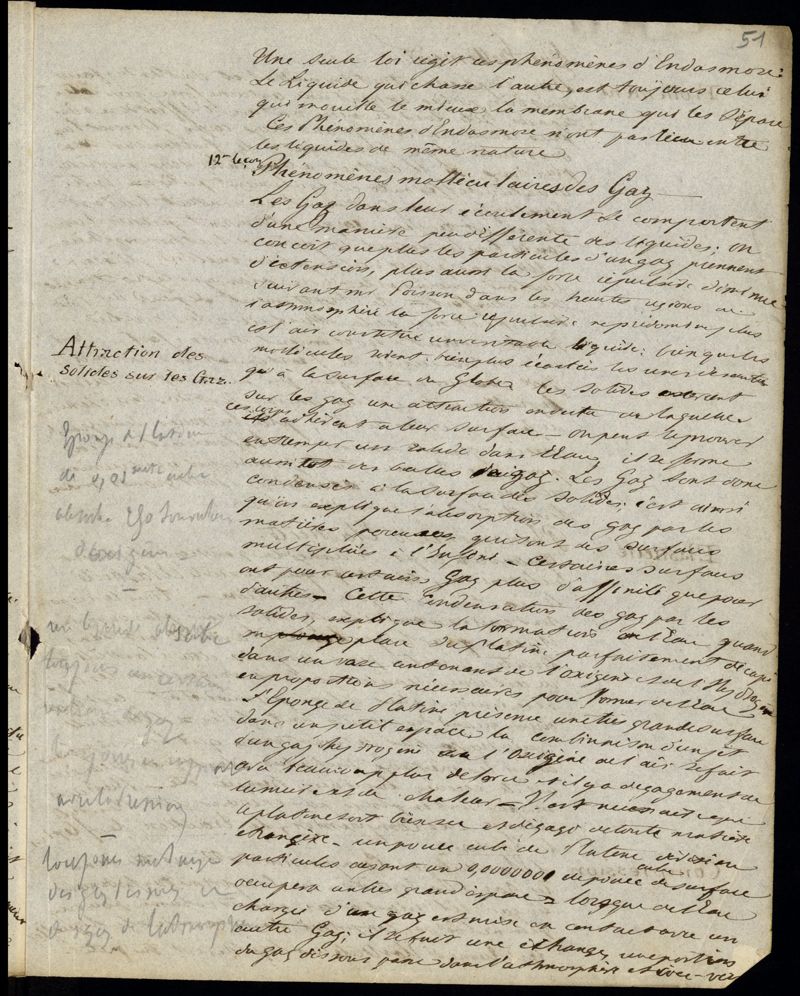 51
Une seule loi régit ces phénomènes d'Endosmose:
Le Liquide qui chasse l'autre, est toujours celui
qui mouille le mieux la membrane qui les sépare
Ces Phénomènes d'Endosmose n'ont pas lieu entre
les liquides de même nature
12e leçon
Phénomènes molléculaires des Gaz —
Les Gaz dans leur écoulement se comportent
d'une manière peu différente des liquides: on
conçoit que plus les particules d'un gaz prennent
d'extension, plus aussi la force répulsive diminue
suivant mr Poisson dans les hautes régions de
l'athmosphère la force répulsive
l'air constitue un véritable liquide: bien que les
mollécules soient bien plus écartées les unes des autres
qu'à la surface du Globe
Attraction des
solides sur les Gaz.
les solides exercent
sur les gaz une attraction en vertu de laquelle
ces corps adhèrent à leur surface — on peut le prouver
en trempant un solide dans l'Eau, il se forme
aussitôt des bulles de gaz. Les Gaz sont donc
condensés à la surface des solides; c'est ainsi
qu'on explique l'absorption des gaz par les
matières poreuses, qui sont des surfaces
multipliées à l'Infini — certaines surfaces
ont pour certains Gaz plus d'affinité que pour
d'autres — Cette condensation des gaz par les
solides, explique la formation de l'Eau quand
on place du platine parfaitement décapé
dans un vase contenant de l'oxigène et de l'Hydrogène
en proportions nécessaires pour former de l'Eau
L'Eponge de Platine présente une très grande surface
dans un petit espace la combinaison d'un jet
d'un gaz hydrogène l'Oxigène de l'air se fait
avec beaucoup plus de force et il y a dégagement de
lumière et de chaleur — Il est nécessaire que
le platine soit bien sec et dégagé de toute matière
étrangère — un pouce cube de Platine
particules ayant un 0,0000000 de pouce de surface
occupera un très grand espace — Lorsque de l'Eau
chargée d'un gaz est mise en contact avec un
autre Gaz, il se fait une échange, une portion
du gaz dissous passe dans l'athmosphère et vice-ver
Eponge de Platine
absorbe 250
d'oxigène
un liquide absorbe
toujours un certain
de gaz —
toujours mélange
des gaz dissous
de gaz de l'athmosphère